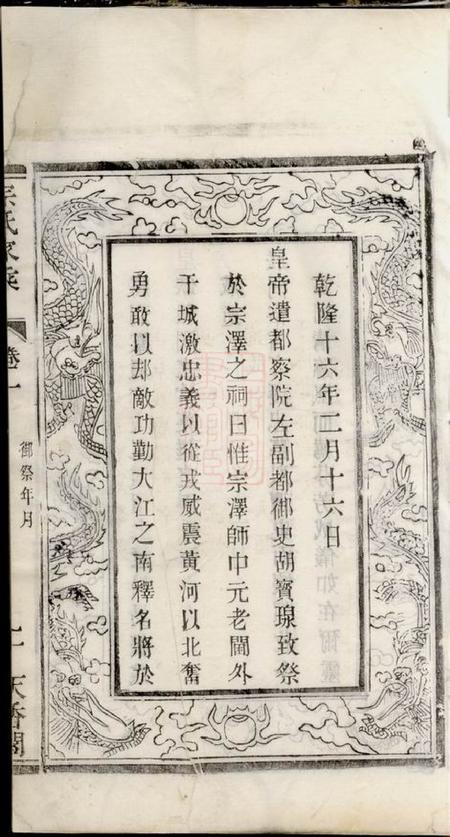 乾隆十六年二月十六日
皇帝遣都察院左副都御史胡寳瑔致祭
於宗澤之祠曰惟宗澤師中元老閫外
干城激忠義以從戎威震黃河以北奮
勇敢以却敵功勤大江之南釋名將於
宗氏家乘
卷一
御祭年月
天香閣